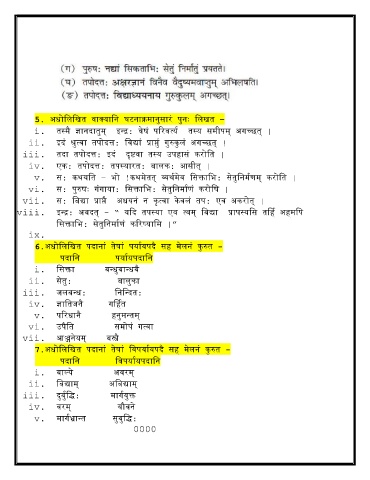 (ग) पुरुषः नद्यां सिकताभिः सेतुं निर्मातुं प्रयतते।
(घ) तपोदत्तः अक्षरज्ञानं विनैव वैदुष्यमवाप्तुम् अभिलषति।
(ङ) तपोदत्तः विद्याध्ययनाय गुरुकुलम् अगच्छत्।
5. अधोलिखित वाक्यानि घटनाक्रमानुसारं पुनः लिखत –
i. तस्मै ज्ञानदातुम् इन्द्रः वेषं परिवर्त्य तस्य समीपम् अगच्छत् ।
ii. इदं श्रुत्वा तपोदत्तः विद्यां प्राप्तुं गुरुकुलं अगच्छत् ।
iii. तदा तपोदत्तः इदं दृष्ट्वा तस्य उपहासं करोति ।
iv. एकः तपोदत्तः तपस्यारतः बालकः आसीत् ।
v. सः कथयति – भो !कथमेतत् व्यर्थमेव सिक्ताभिः सेतुनिर्मणम् करोति ।
vi. सः पुरुषः गंगायाः सिक्ताभिः सेतुनिर्माणं करोषि ।
vii. सः विद्या प्राप्तै अध्ययनं न कृत्वा केवलं तपः एव अकरोत् ।
viii. इन्द्रः अवदत् – “ यदि तपस्या एव त्वम् विद्या प्रापस्यसि तर्हि अहमपि
सिक्ताभिः सेतुनिर्माणं करिष्यामि ।”
ix.
6.अधोलिखित पदानां तेषां पर्यायपदै सह मेलनं कुरुत –
पदानि पर्यायपदानि
i. सिक्ता बन्धुबान्धवै
ii. सेतुः बालुका
iii. जलबन्धः निन्दितः
iv. ज्ञातिजनै गर्हित
v. परिधानै हनुमन्तम्
vi. उपैति समीपं गत्वा
vii. आञ्जनेयम् वस्त्रै
7.अधोलिखित पदानां तेषां विपर्यायपदै सह मेलनं कुरुत –
पदानि विपर्यायपदानि
i. बाल्ये अवरम्
ii. विद्याम् अविद्याम्
iii. दुर्बुद्धिः मार्गयुक्त
iv. वरम् यौवने
v. मार्गभ्रान्त सुबुद्धिः
0000